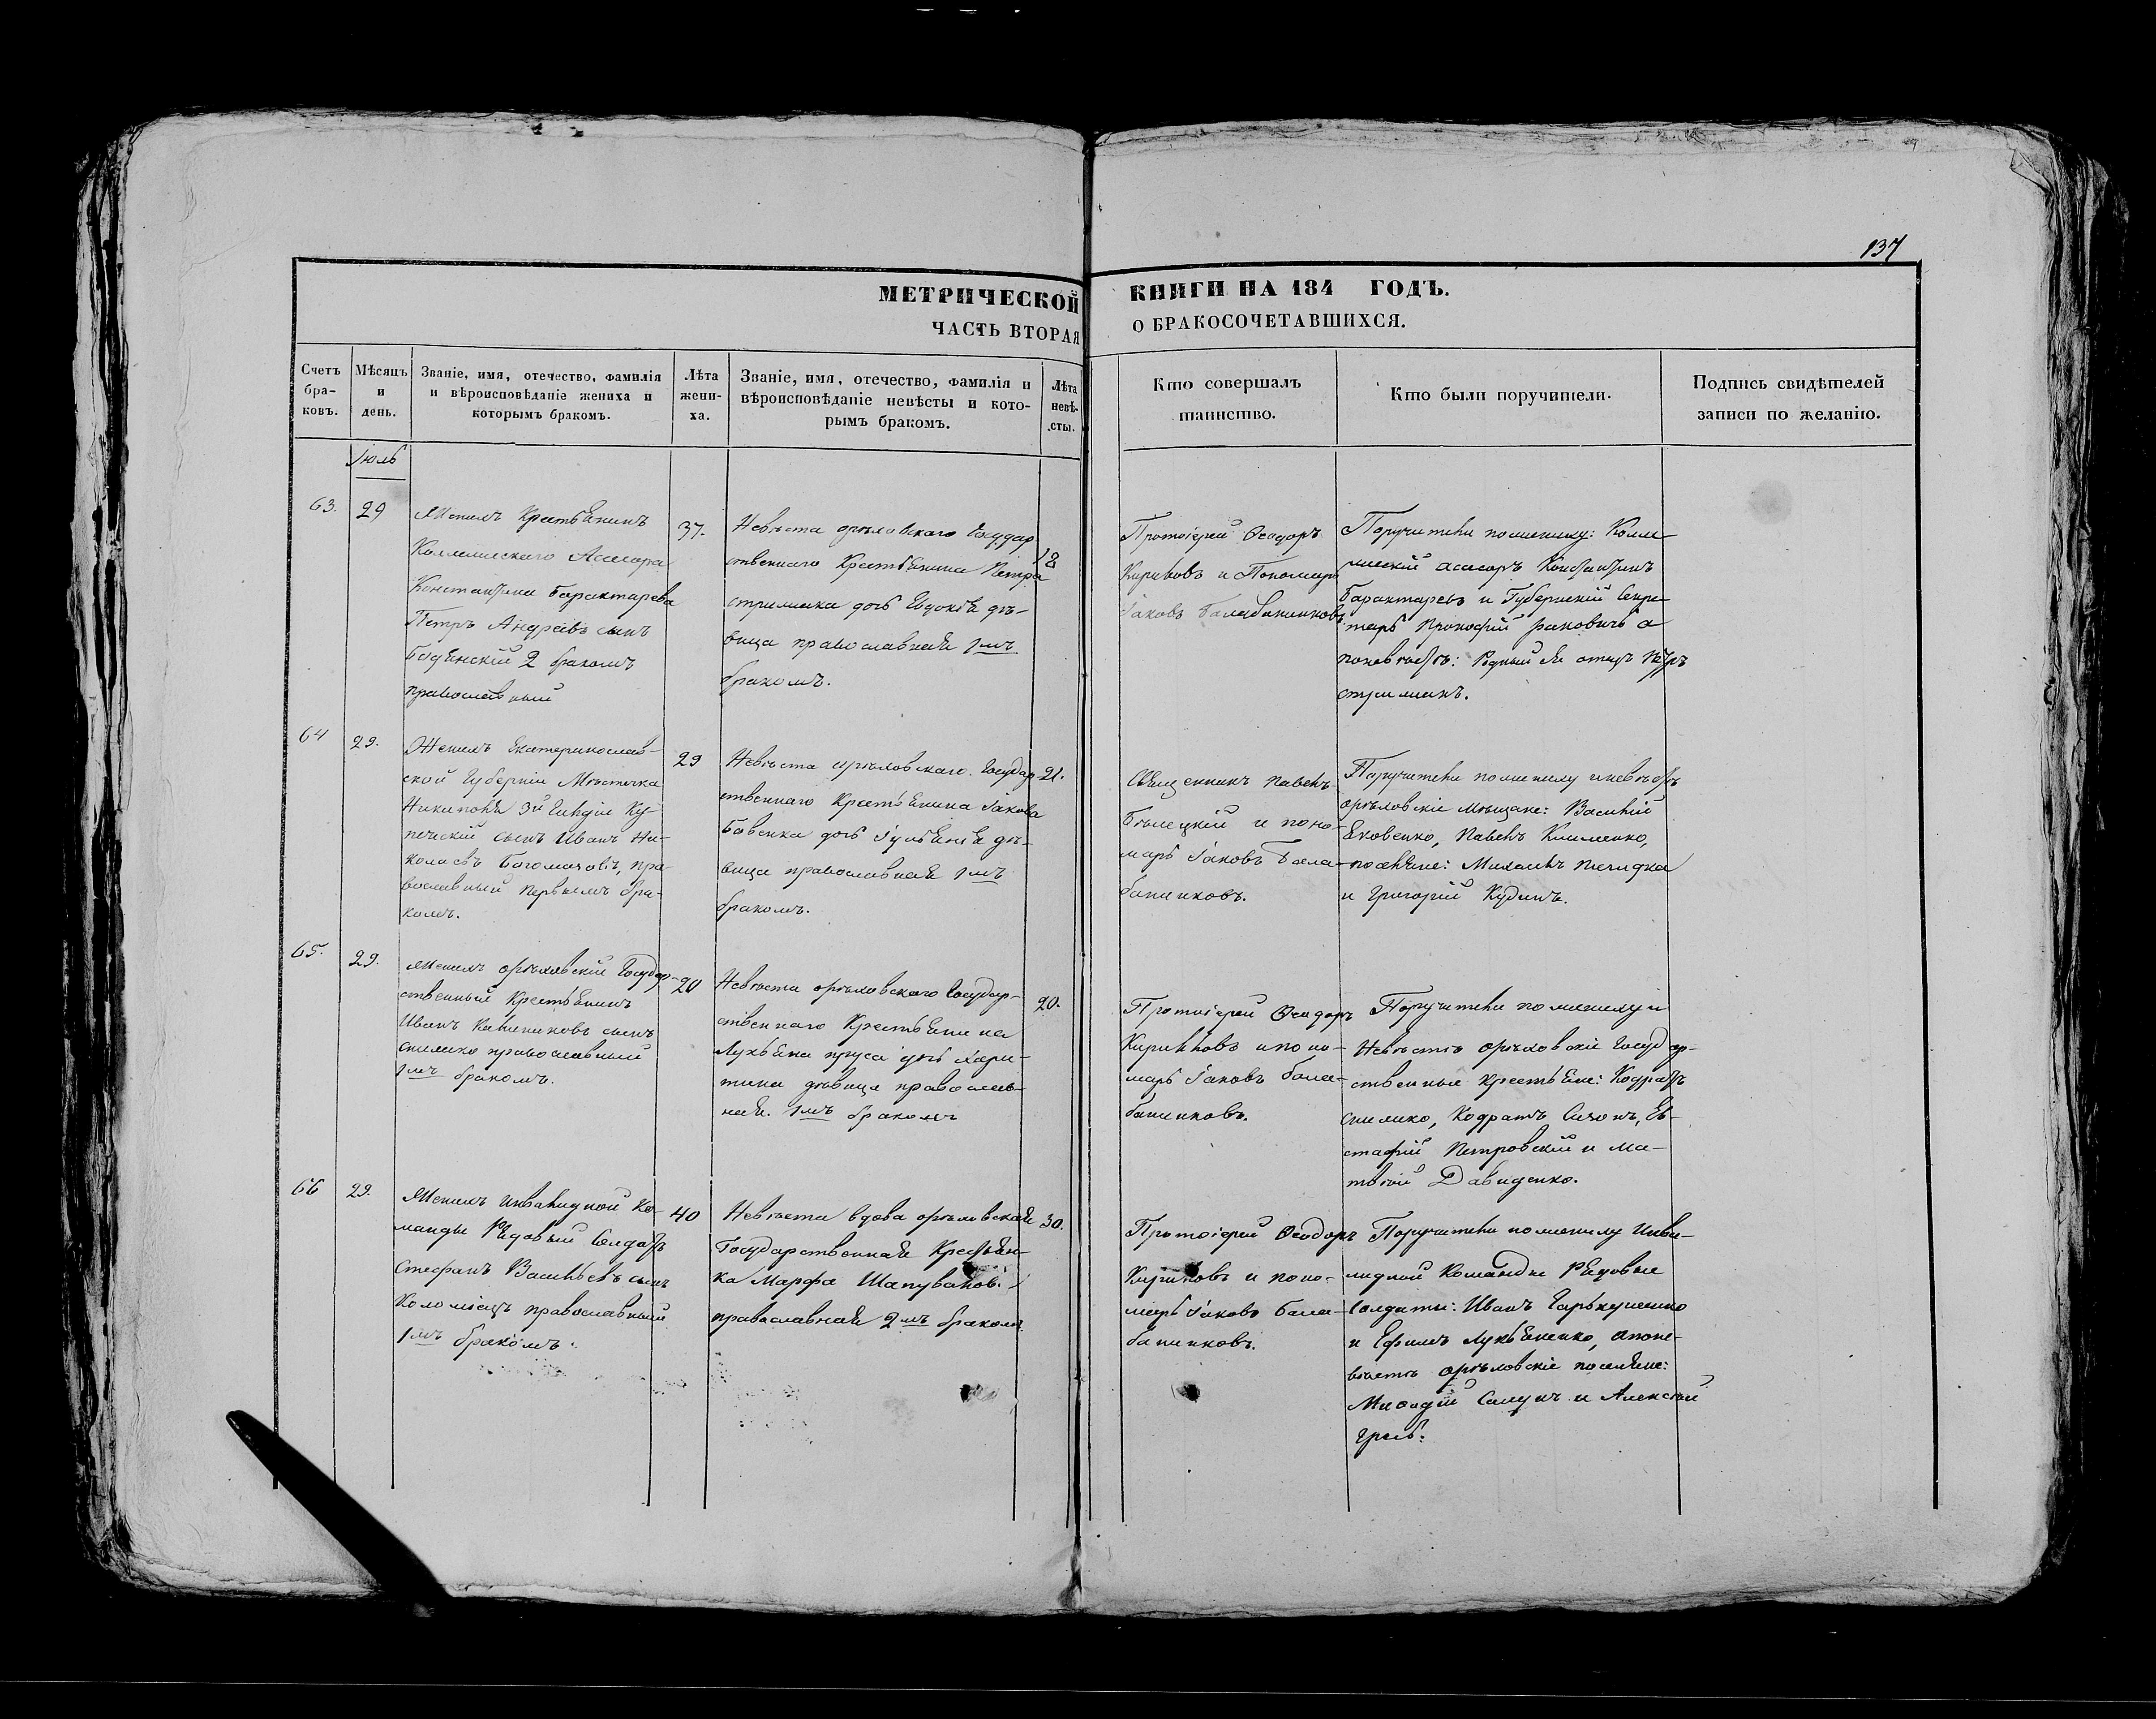 137
МЕТРИЧЕСКОЙ КНИГИ НА 184 ГОДЪ.
ЧАСТЬ ВТОРАЯ О БРАКОСОЧЕТАВШИХСЯ.
Счетъ бра-ковъ.
Мѣсяцъ и день.
Званіе, имя, отечество, фамилія и вѣроисповѣданіе жениха и которымъ бракомъ.
Лѣта жени-ха.
Званіе, имя, отечество, фамилія и вѣроисповѣданіе невѣсты и кото-рымъ бракомъ.
Лѣта невѣ-сты.
Кто совершалъ таинство.
Кто были поручители.
Подпись свидѣтелей записи по желанію.
Іюль
63.
29
Женихъ Крестьянинъ
Коллежскаго Асесора
Константина Барактарева
Петръ Андреевъ сынъ
2 бракомъ
православный
37.
Невѣста орѣховскаго Государ
ственнаго Крестьянина Петра
дочь Евдокія дѣ-
вица православная 1мъ
бракомъ.
18
Протоіерей Ѳеодоръ
Кириковъ и Пономарь
Іаковъ
Поручители по жениху: Колле-
жскій асесоръ Константинъ
Барактаревъ и Губернскій Секре-
тарь Прокофій а
по невѣстѣ: Родный ея отецъ Петръ
64
29.
Женихъ Екатеринослав-
ской Губерніи Мѣстечка
Никополя 3й Гильдіи Ку-
печескій сынъ Иванъ Ни-
колаевъ пра-
вославный первымъ бра-
комъ.
29
Невѣста орѣховскаго Государ
ственнаго Крестьянина Іакова
Бабенка дочь Іуліанія дѣ-
вица православная 1мъ
бракомъ.
21.
Священникъ Павелъ
Бѣлецкій и поно-
марь Іаковъ Бала-
банниковъ.
Поручители по жениху и невѣстѣ
орѣховскіе мѣщане: Василій
Яковенко, Павелъ Клименко,
поселяне: Михаилъ
и Григорій Кудинъ.
65.
29.
Женихъ орѣховскій Государ-
ственный Крестьянинъ
Иванъ сынъ
православный
1мъ бракомъ.
20
Невѣста орѣховскаго Государ-
ственнаго Крестьянина
Лукьяна Пруса дочь Хари-
тина дѣвица православ-
ная 1мъ бракомъ
20.
Протоіерей Ѳеодоръ
Кириковъ и поно-
марь Іаковъ Бала-
банниковъ.
Поручители по жениху и
Невѣстѣ орѣховскіе Государ-
ственные крестьяне: Кодратъ
Кодратъ Ев-
стафій Петровскій и Ма-
твѣй Давиденко.
66
29.
Женихъ Инвалидной Ко-
манды Рядовый Солдатъ
Стефанъ Васильевъ сынъ
Коломіецъ православный
1мъ бракомъ.
40
Невѣста вдова орѣховская
Государственная Крестьян-
ка Марфа
православная 2мъ бракомъ.
30.
Протоіерей Ѳеодоръ
Кириковъ и поно-
марь Іаковъ Бала-
банниковъ.
Поручители по жениху Инва-
лидной Команды Рядовые
Солдаты: Иванъ
и Ефимъ Лукьяненко, а по не-
вѣстѣ орѣховскіе поселяне:
и Алексѣй